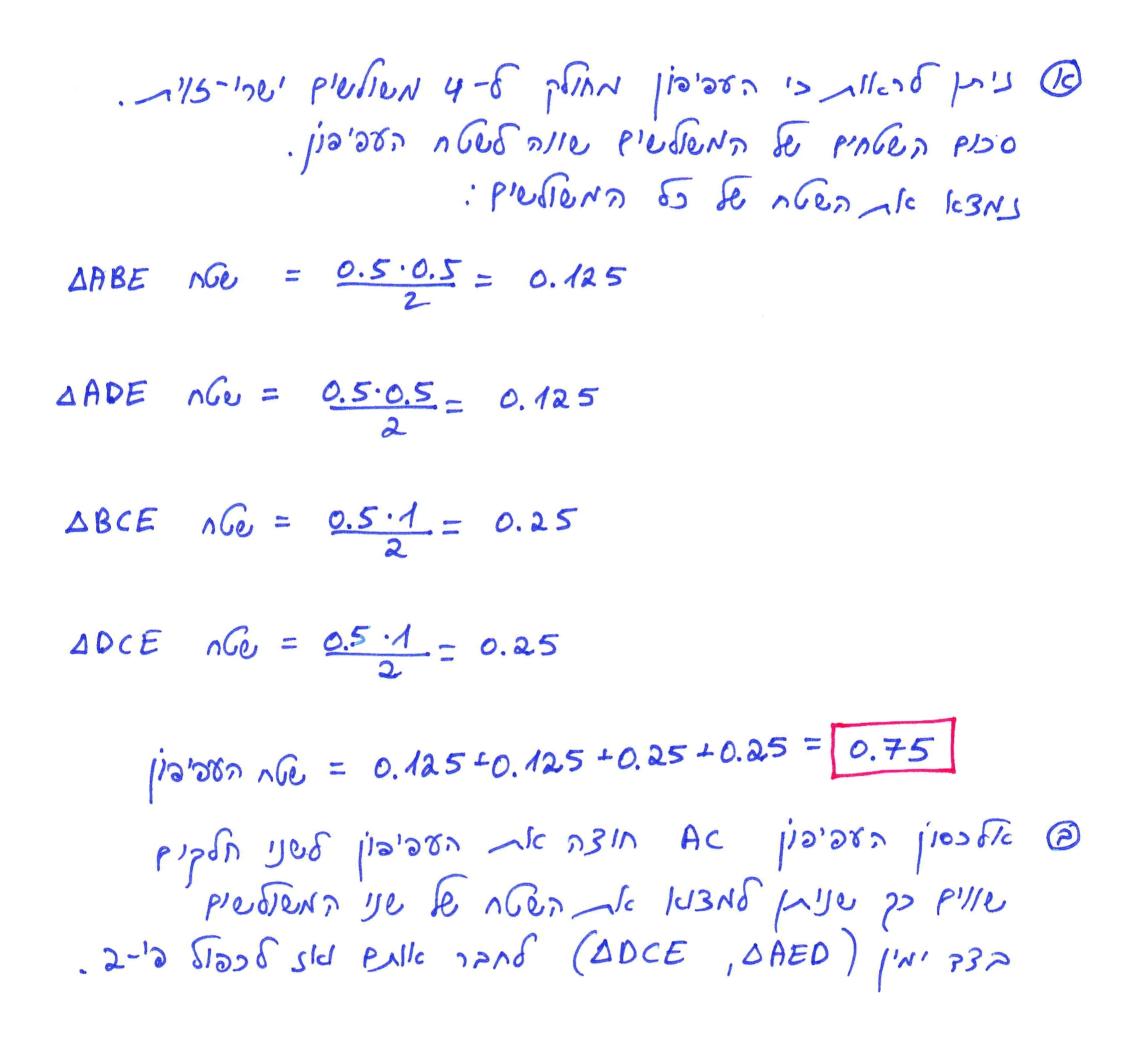 א ניתן לראות כי העפיפון מחולק ל-4 משולשים ישרי-זוית.
סכום השטחים של המשולשים שווה לשטח העפיפון.
נמצא את השטח של כל המשולשים:
ΔABE שטח = 0.5·0.5/2 = 0.125
ΔADE שטח = 0.5·0.5/2 = 0.125
ΔBCE שטח = 0.5·1/2 = 0.25
ΔDCE שטח = 0.5·1/2 = 0.25
שטח העפיפון = 0.125+0.125+0.25+0.25 = 0.75
ב אלכסון העפיפון AC חוצה את העפיפון לשני חלקים
שווים כך שניתן למצוא את השטח של שני המשולשים
בצד ימין (ΔDCE, ΔAED) לחבר אותם ואז לכפול ב-2.